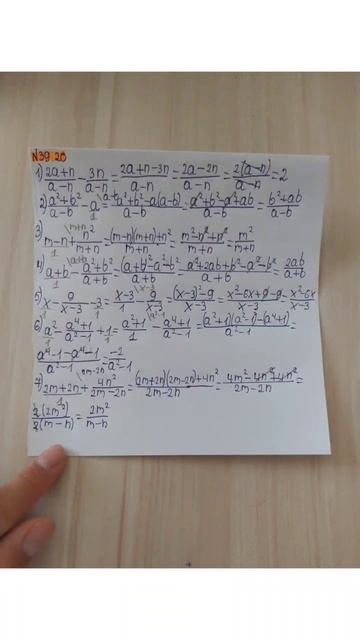 N39 20
1) (2a+n)/(a-n) - 3n/(a-n) = (2a+n-3n)/(a-n) = (2a-2n)/(a-n) = 2(a-n)/(a-n) = 2
2) (a²+b²)/(a-b) - a/1 = (a²+b²-a(a-b))/(a-b) = (a²+b²-a²+ab)/(a-b) = (b²+ab)/(a-b)
3) m-n/1 + n²/(m+n) = ((m-n)(m+n)+n²)/(m+n) = (m²-n²+n²)/(m+n) = m²/(m+n)
4) a+b/1 - (a²+b²)/(a+b) = ((a+b)²-a²-b²)/(a+b) = (a²+2ab+b²-a²-b²)/(a+b) = 2ab/(a+b)
5) x/1 - 9/(x-3) - 3/1 = (x-3)/1 - 9/(x-3) = ((x-3)²-9)/(x-3) = (x²-6x+9-9)/(x-3) = (x²-6x)/(x-3)
6) a²/1 - (a⁴+1)/(a²-1) + 1/1 = (a²+1)/1 - (a⁴+1)/(a²-1) = ((a²+1)(a²-1)-(a⁴+1))/(a²-1) =
(a⁴-1-a⁴-1)/(a²-1) = -2/(a²-1)
7) (2m+2n)/1 + 4n²/(2m-2n) = ((2m+2n)(2m-2n)+4n²)/(2m-2n) = (4m²-4n²+4n²)/(2m-2n) =
2(2m²)/2(m-n) = 2m²/(m-n)